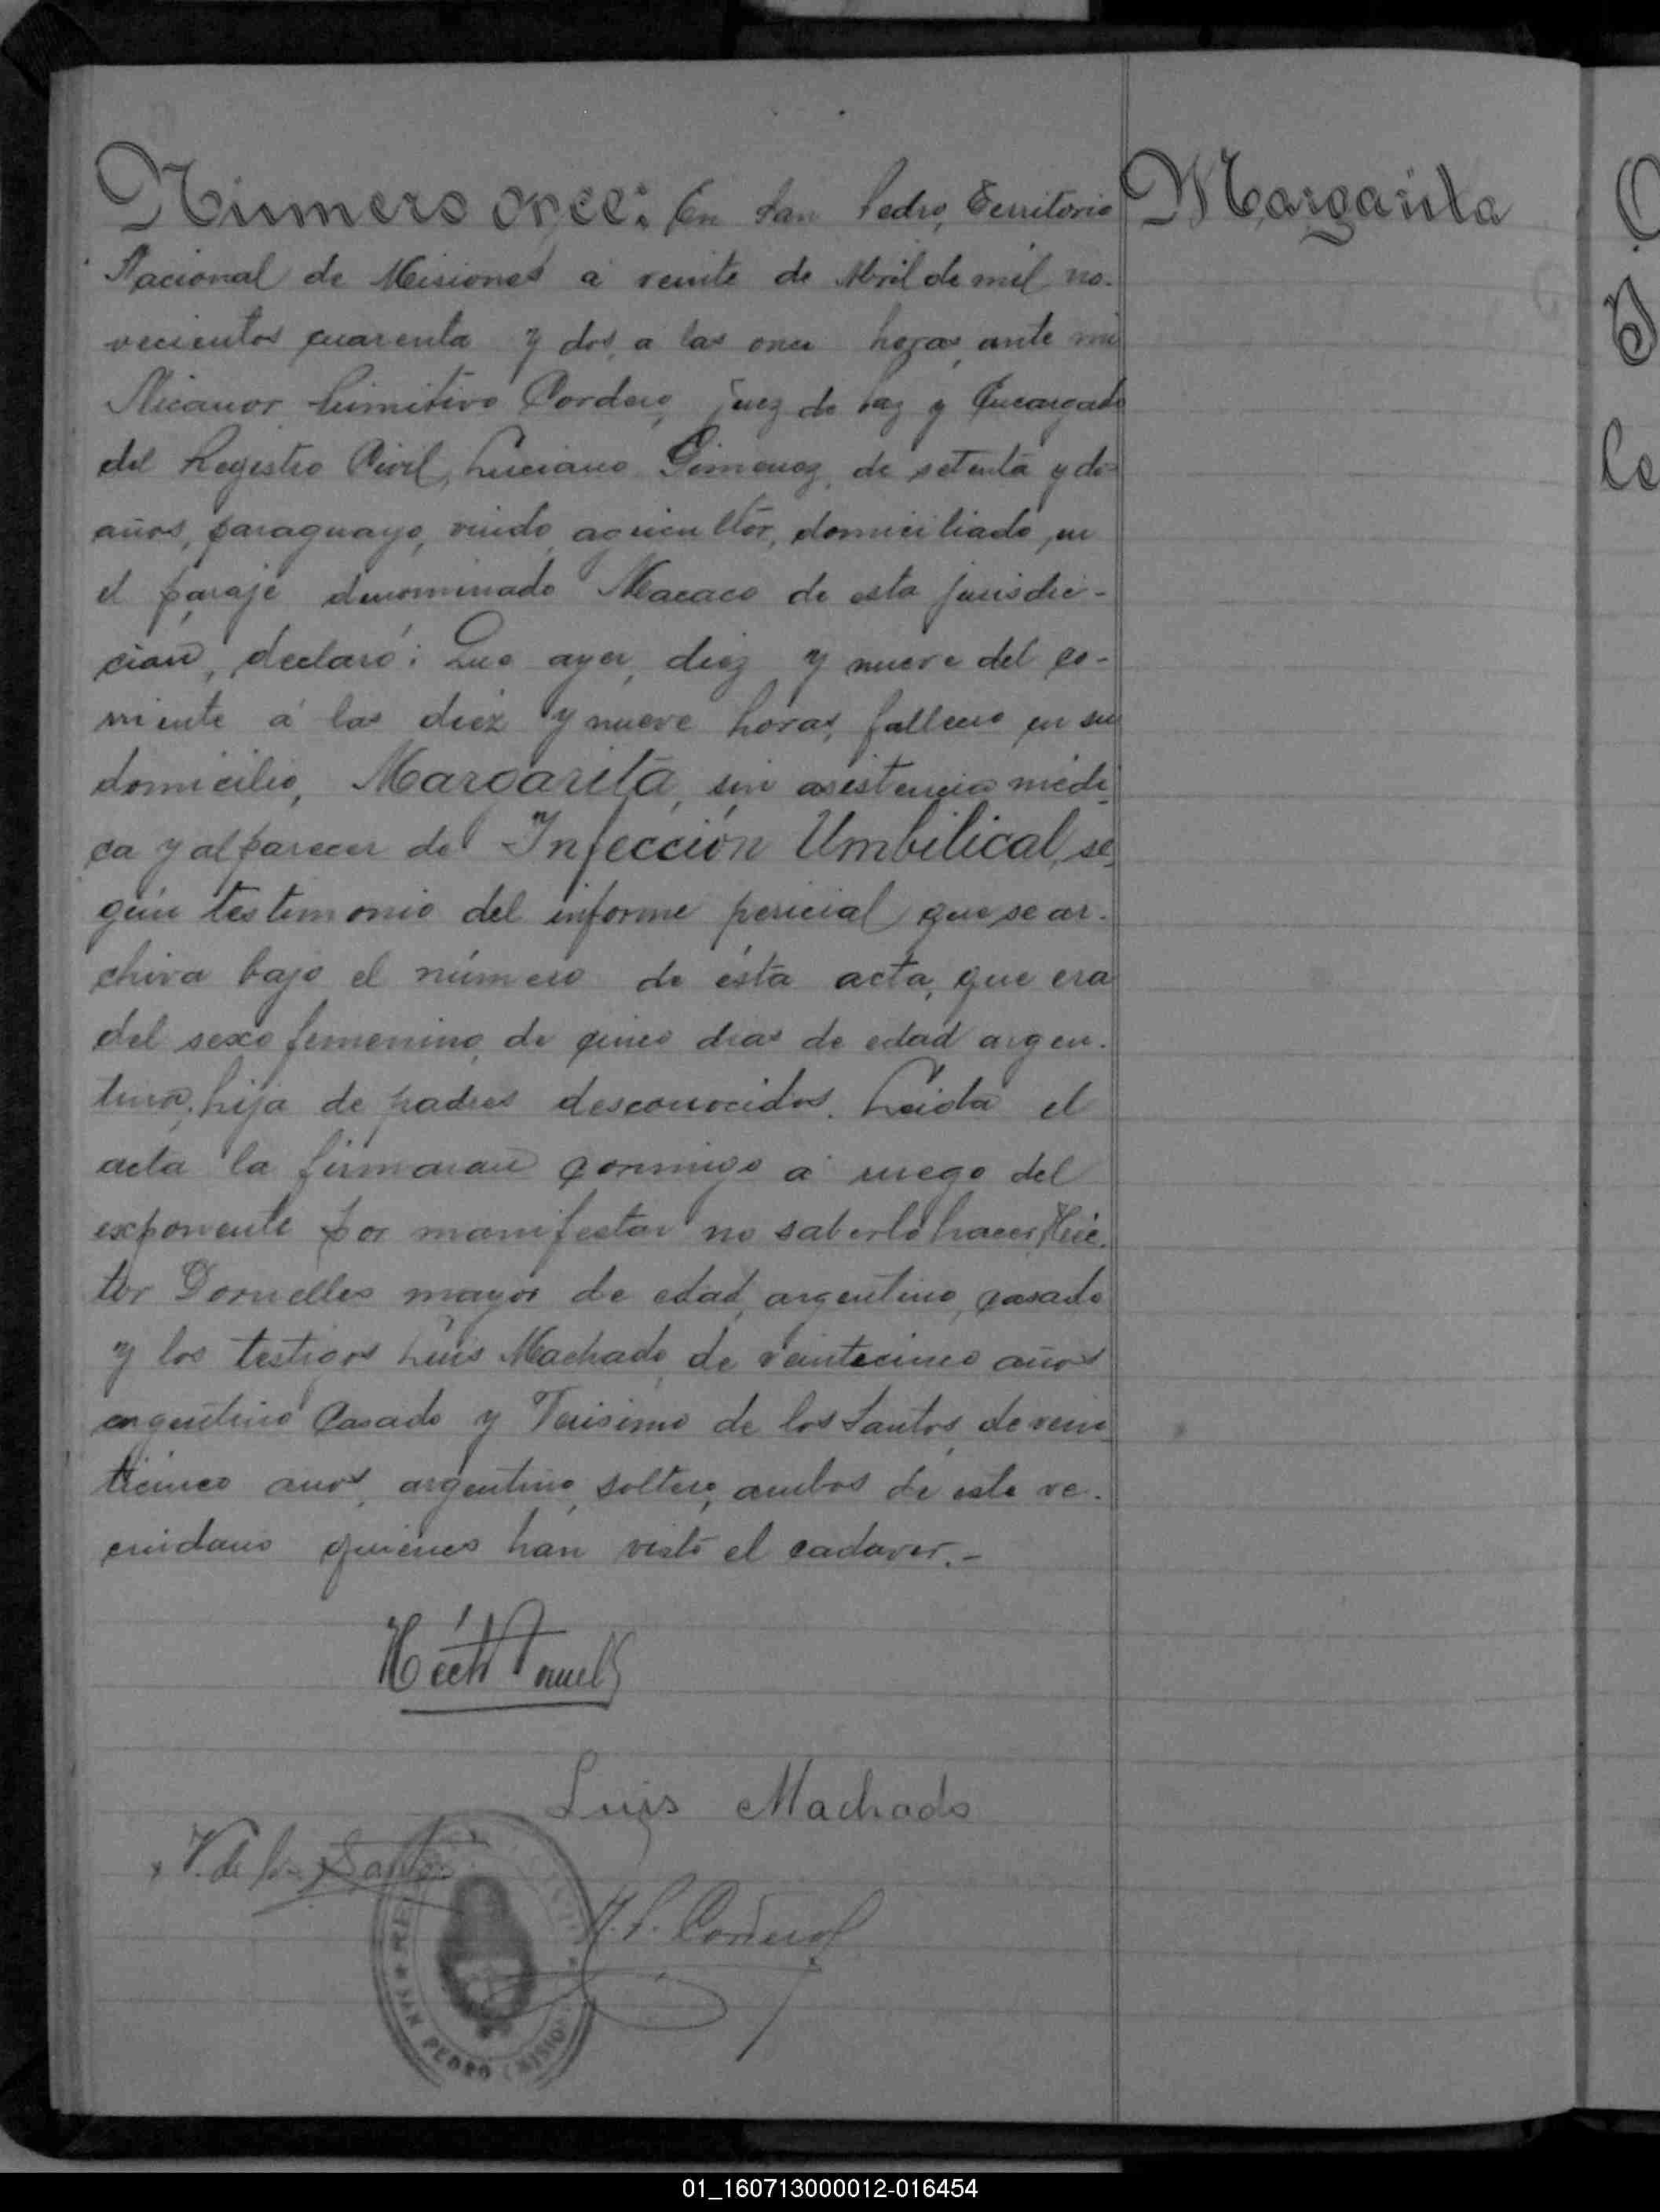 Número once: En San Pedro, Territorio
Margarita
Nacional de Misiones a veinte de Abril de mil no-
vecientos cuarenta y dos, a las once horas, ante mi
Nicanor Primitivo Cordero, Juez de Paz y Encargado
del Registro Civil, Luciano Gimenez, de setenta y dos
años, paraguayo, viudo, agricultor, domiciliado en
el paraje denominado Macaco de esta jurisdic-
ción, declaró: Que ayer, diez y nueve del co-
rriente á las diez y nueve horas, falleció en su
domicilio, Margarita, sin asistencia médi-
ca y al parecer de Infección Umbilical, se-
gún testimonio del informe pericial que se ar-
chiva bajo el número de ésta acta, que era
del sexo femenino, de cinco dias de edad argen-
tina, hija de padres desconocidos. Leida el
acta la firmaran conmigo a ruego del
exponente por manifestar no saberlo hacer, Héc-
tor Dornelles mayor de edad, argentino, casado
y los testigos Luis Machado, de veintecinco años
argentino casado y Verisimo de los Santos, de vein-
ticinco anos, argentino, soltero, ambos de este ve-
cindario quienes han visto el cadaver.-
Héctor Dornells
Luis Machado
V. de los Santos
N. P. Cordero
SAN PEDRO (MISIONES)
01_160713000012-016454